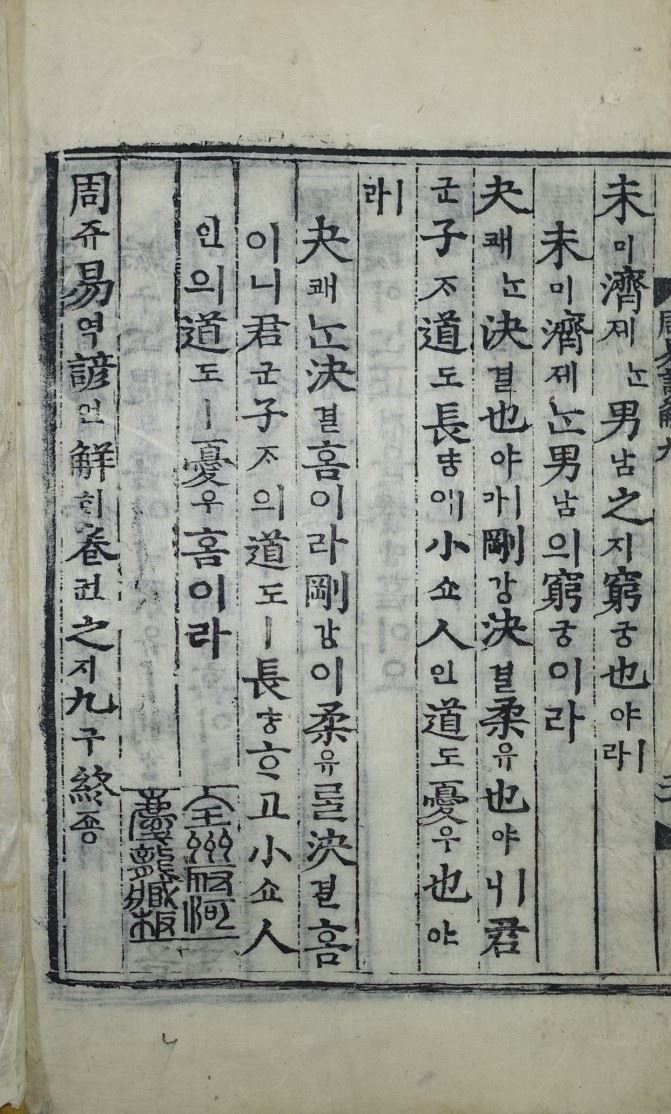 未미濟제ᄂᆞᆫ男남之지窮궁也야ㅣ라
未미濟제ᄂᆞᆫ男남의窮궁이라
夬쾌ᄂᆞᆫ決결也야ㅣ라剛강決결柔유也야ㅣ니君
군子ᄌᆞ道도長댱小쇼人인道도憂우也야
ㅣ라
夬쾌ᄂᆞᆫ決결홈이라剛강이柔유ᄅᆞᆯ決결홈
이니君군子ᄌᆞ의道도ㅣ長댱ᄒᆞ고小쇼人
인의道도ㅣ憂우홈이라
全州府河
慶龍藏板
周쥬易역諺언解ᄒᆡ卷권之지九구終죵